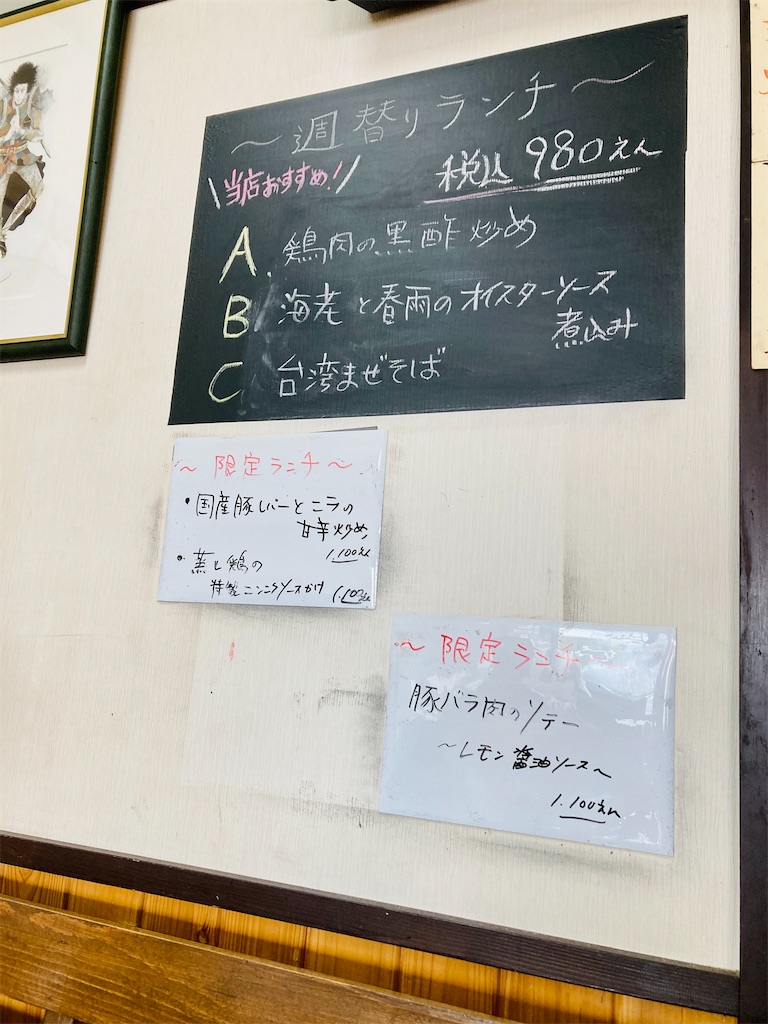 ～週替りランチ～
\当店おすすめ！/
税込 980えん
A. 鶏肉の黒酢炒め
B. 海老と春雨のオイスターソース
煮込み
C. 台湾まぜそば
～限定ランチ～
・国産豚レバーとニラの
甘辛炒め
1.100えん
・蒸し鶏の
特製ニンニクソースがけ 1.100えん
～限定ランチ～
豚バラ肉のソテー
～レモン醤油ソース～
1.100えん